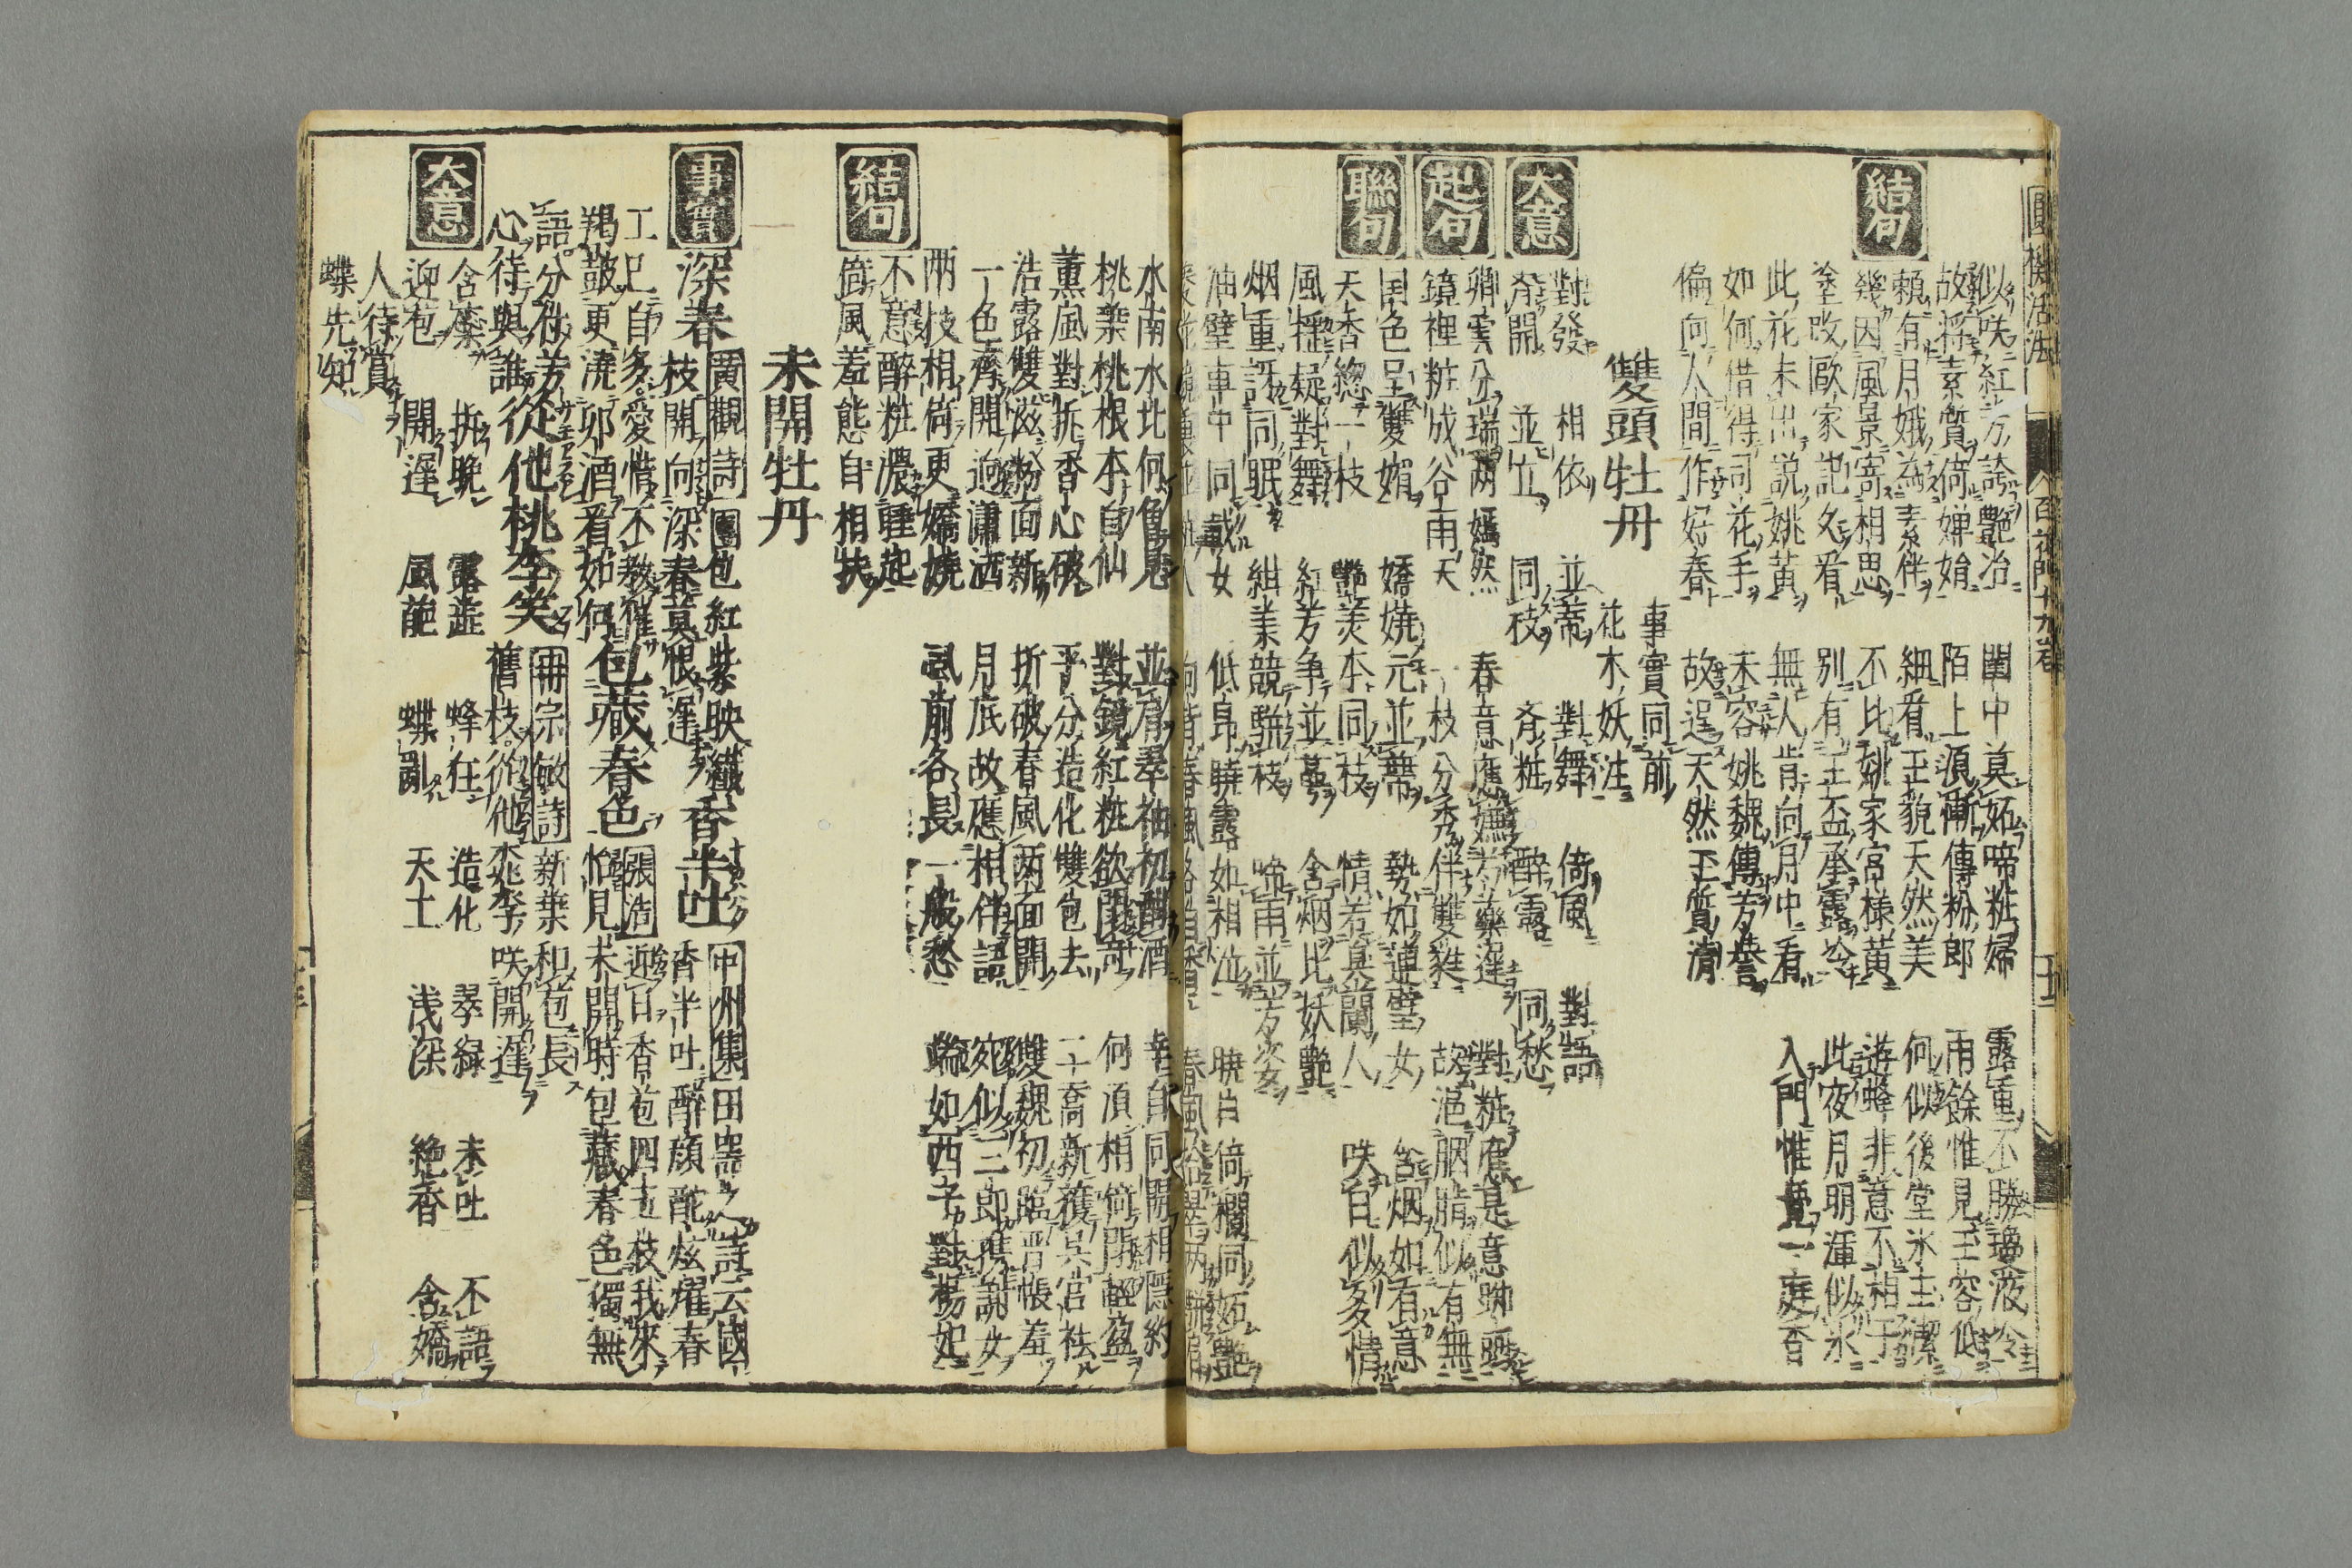 圓機活法
百花門十九卷
似咲紅芳誇艶冶 閨中莫妬啼粧婦 露重不勝瓊液冷
故將素質倚嬋娟 陌上須慚傅粉郎 雨餘惟見玉容低
結句
頼有月娥為素伴 細看玉貌天然美 何似後堂氷玉潔
幾因風景寄相思 不比姚家宮様黄 遊蜂非意不相干
塗改歐家記久看 別有玉盃承露冷 此夜月明渾似氷
此花未出説姚黄 無人肯向月中看 入門惟覺一庭香
如何借得司花手 未容姚魏傳芳譽
偏向人間作好春 故逞天然玉質清
雙頭牡丹
事實同前
花木妖
大意
對發 相依 並蒂 對舞 倚風 對語
齊開 並立 同枝 齊粧 醉露 同愁
起句
卿雲分瑞兩嫣然 春意應嫌芍藥遲 對粧應是意
鏡裡粧成谷雨天 一枝分秀伴雙蕤 故浥胭脂似有無
聯句
国色呈雙媚 嬌嬈元並蔕 勢如連璧女 含烟如有意
天香總一枝 艶羡本同枝 情若臭蘭人 咲日似多情
風擺疑對舞 紅芳争並蔕 含烟比妖艶
烟重訝同眠 紺葉競駢枝 啼雨並芳姿
油壁車中同載女 低昻曉露如相泣 曉日倚欄同妬艶
水南水北何曾見 並肩翠袖初酣酒
桃葉桃根本自仙 對鏡紅粧欲闘奇
薫風對拆香心破 平分造化雙包去 二喬新獲呉宮怯
浩露雙滋粉面新 折破春風両面開 雙魏初臨晋帳羞
一色齊開迥瀟洒 月底故應相伴語 宛似三郎携謝女
両枝相倚更嬌嬈 風前各長一般愁 端如西子對楊妃
結句
不意醉粧濃睡起
倚風羞態自相扶
未開牡丹
事實
深春 黄觀詩 團包紅紫映纎香半吐 中州集 田崇之詩云國
枝開向深春莫恨遲 香半吐醉顔酡炫燿春
工已自多愛惜不教催 包藏春色 張浩 近日香苞四五枝我來
羯鼓更澆卯酒看如何 怕見未開時包藏春色獨無
語分付芳心待與誰 從他桃李笑 冊宗敏詩 新葉和苞長
舊枝從他桃李咲開遲
大意
含蘂 拆晩 露遮 蜂狂 造化 翠緑 未吐 不語
迎苞 開遲 風葩 蝶亂 天工 浅深 絶香 含嬌
人待賞
蝶先知